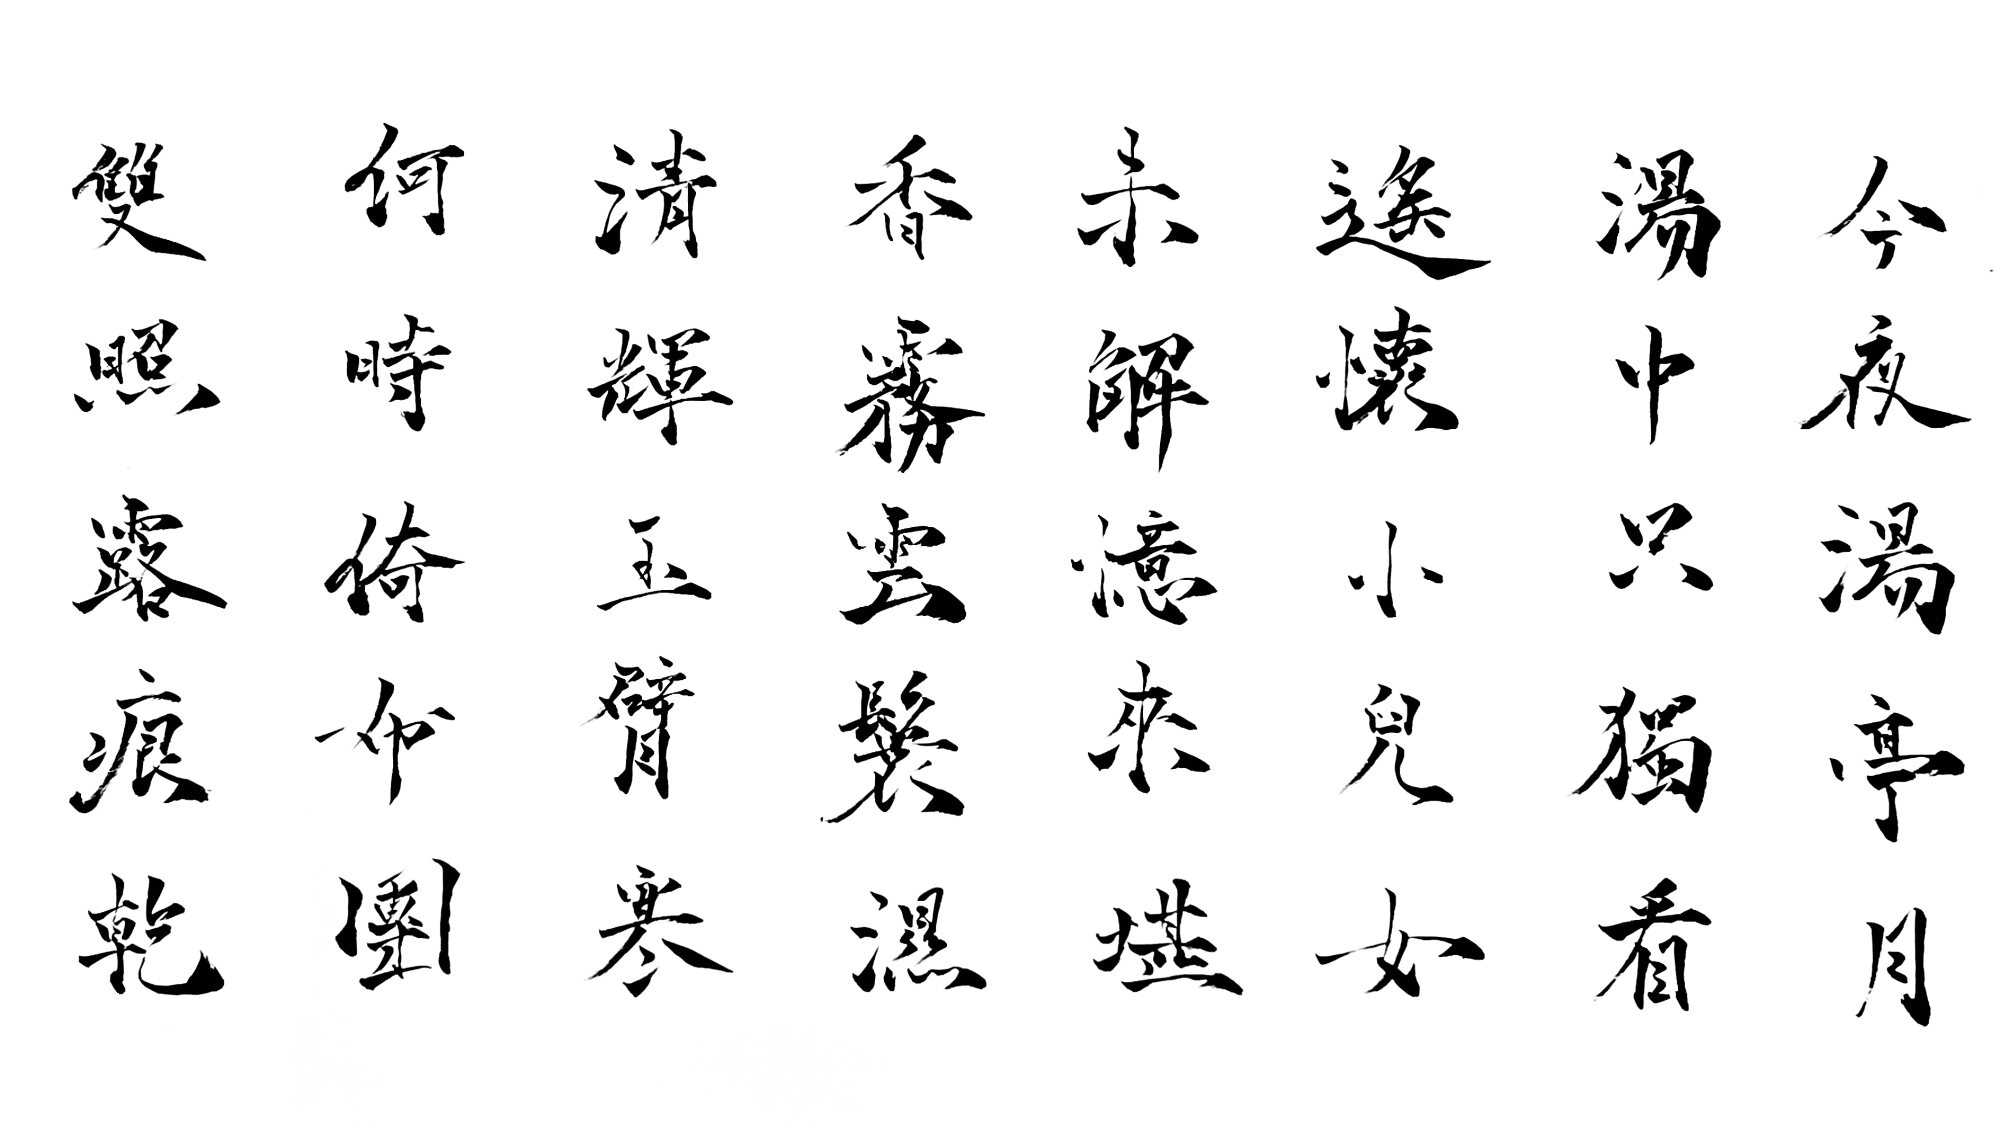 今夜湯亭月
湯中只獨看
遙懷小兒女
未解憶來
香霧雲鬟濕
清輝玉臂寒
何時倚布團
雙照露痕乾